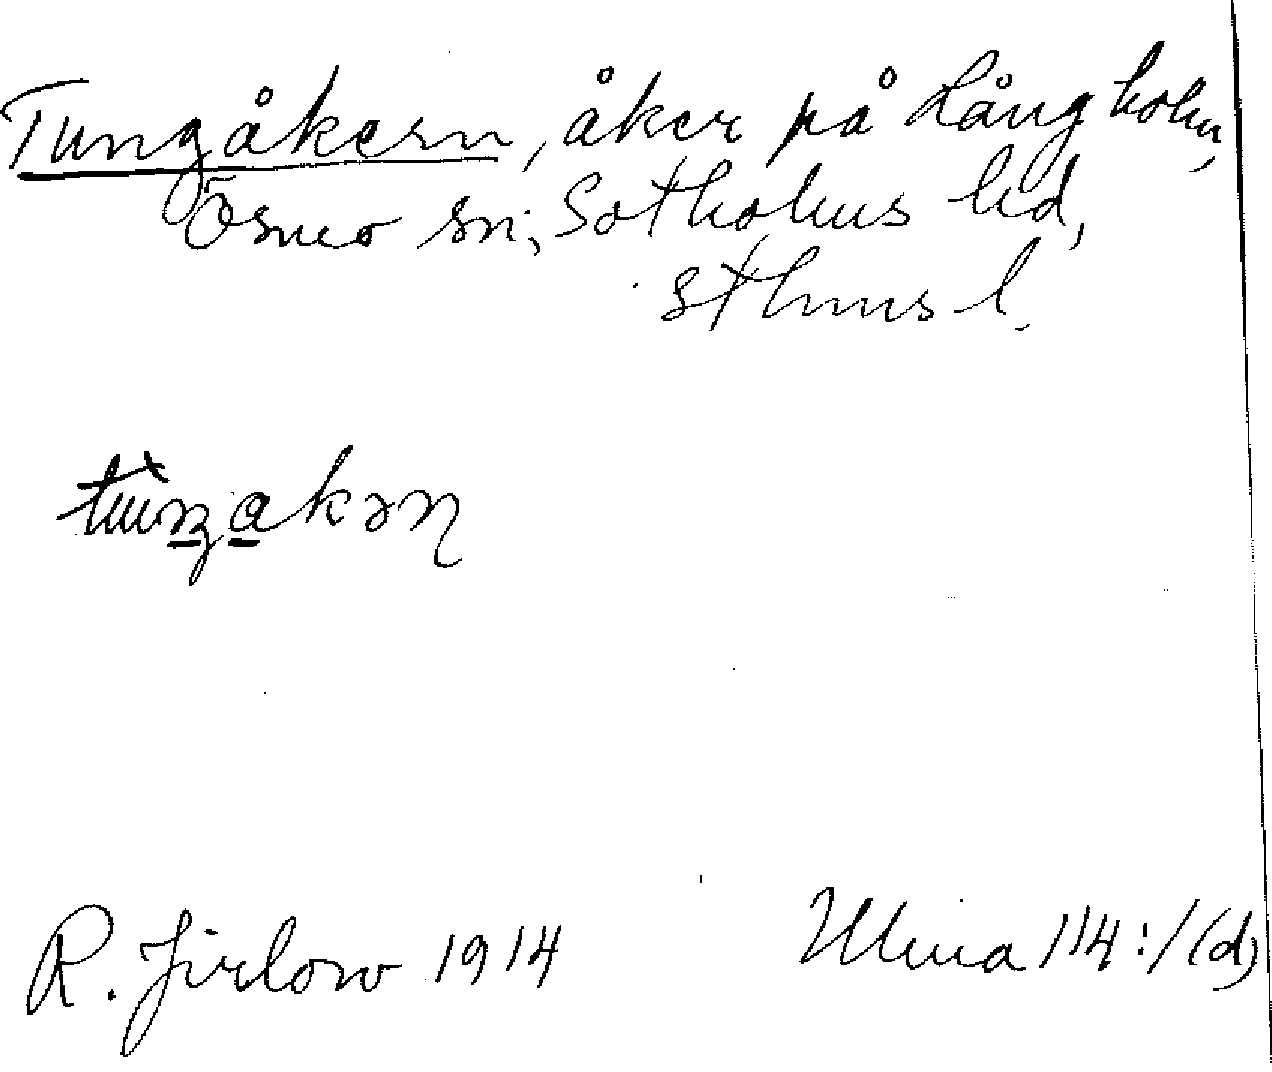 Tungåkern, åker på Långholm,
Ösmo sn; Sotholms hd,
Sthms l.
R. Jirlow 1914
114:1(d)